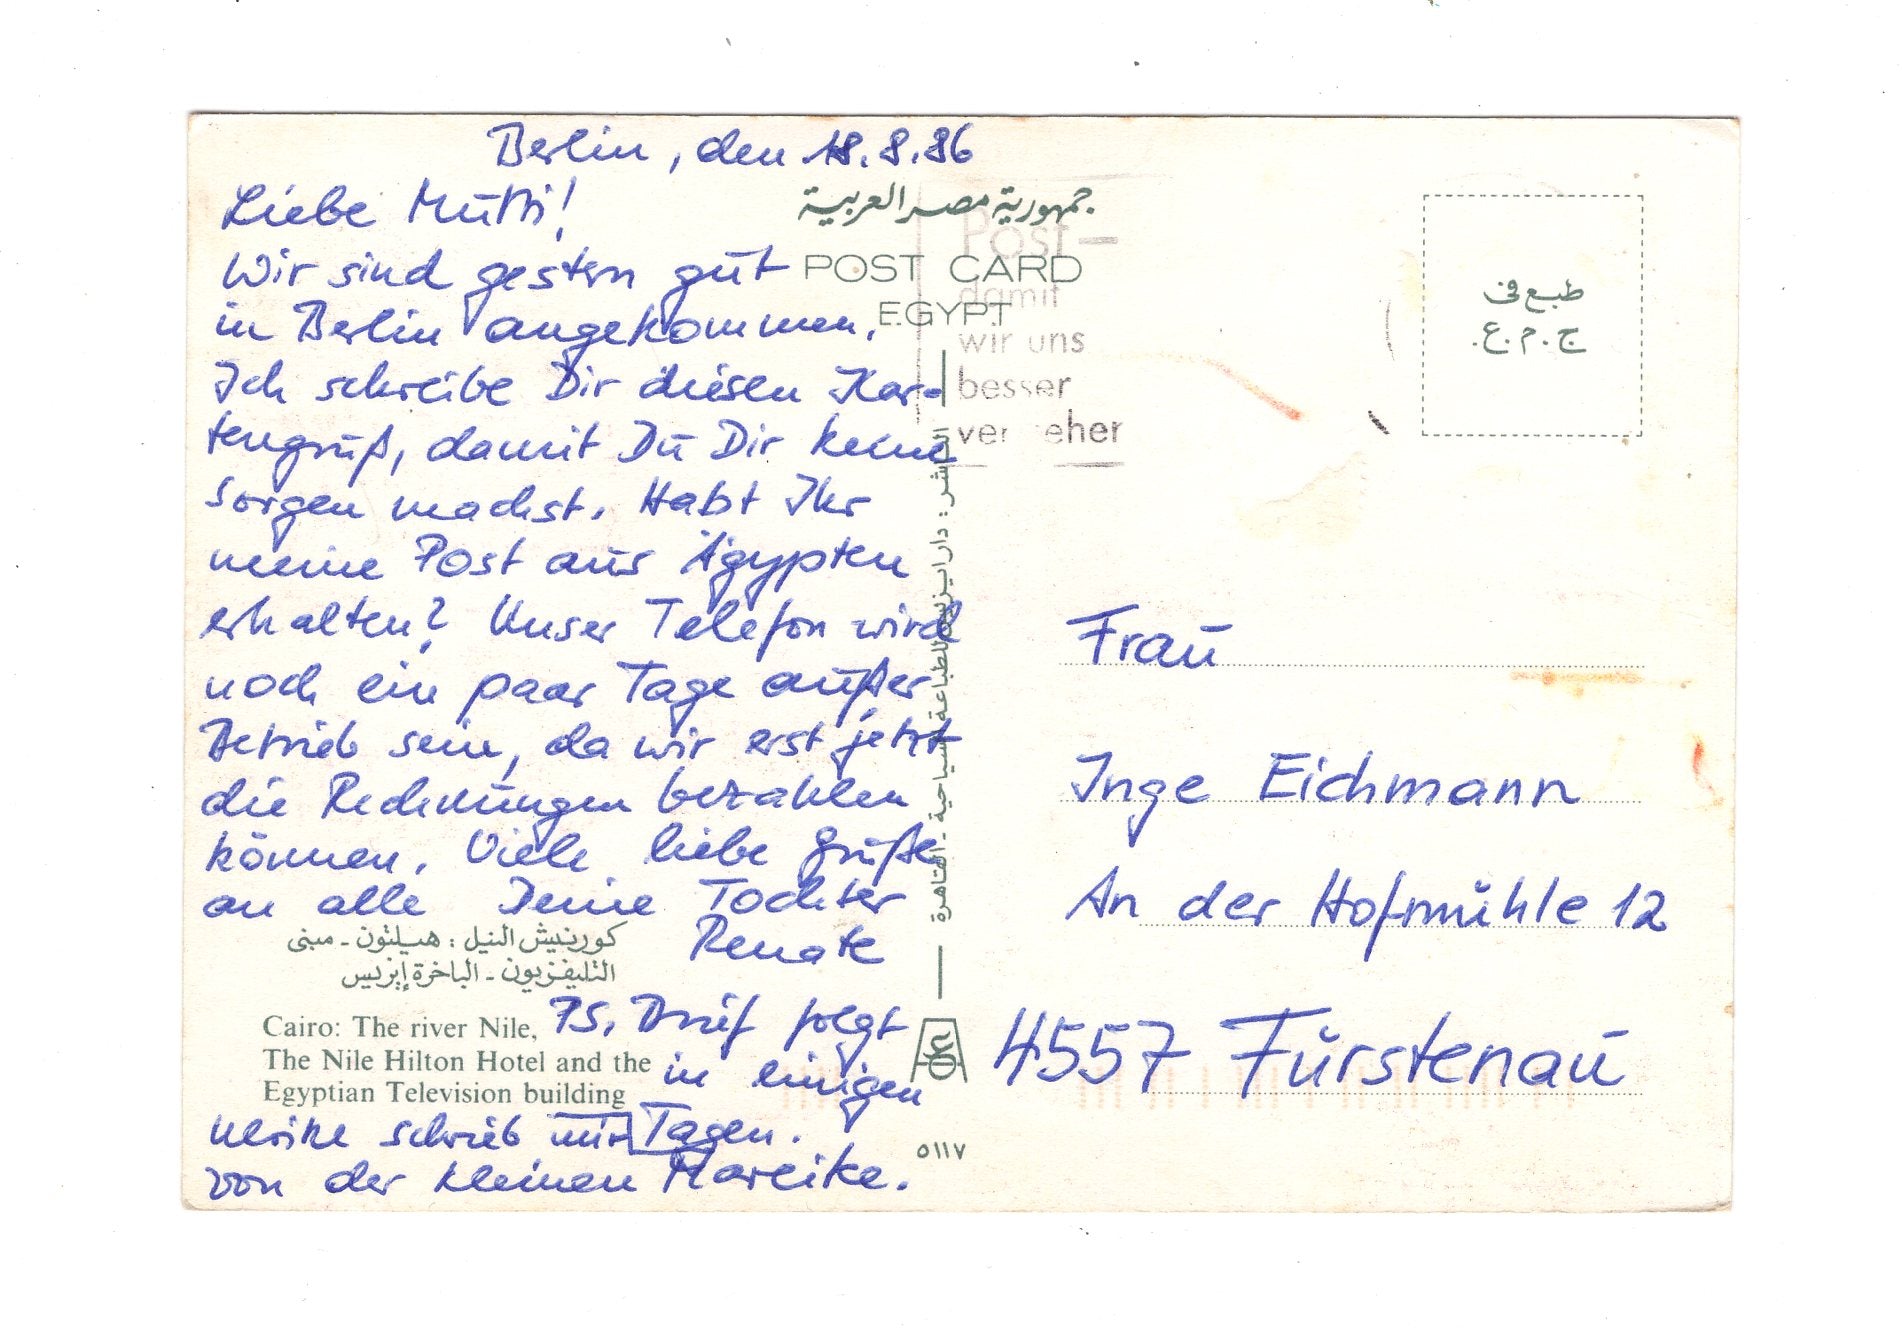 Berlin, den 18.8.86
Liebe Mutti!
Wir sind gestern gut
in Berlin angekommen.
Ich schreibe Dir diesen Kar-
tengruß, damit Du Dir keine
Sorgen machst. Habt Ihr
meine Post aus Ägypten
erhalten? Unser Telefon wird
noch ein paar Tage außer
Betrieb sein, da wir erst jetzt
die Rechnungen bezahlen
können. Viele liebe Grüße
an alle Deine Tochter
Renate
PS. Brief folgt
in einigen
Tagen.
Ulrike schrieb mir
von der kleinen Mareike.
كورنيش النيل : هيلتون - مبنى
التليفزيون - الباخرة إيزيس
Cairo: The river Nile,
The Nile Hilton Hotel and the
Egyptian Television building
جمهورية مصر العربية
POST CARD
EGYPT
Post-
damit
wir uns
besser
الناشر : دار ايزيس للطباعة السياحية - القاهرة
٥١١٧
طبع فى
ج.م.ع.
Frau
Inge Eichmann
An der Hofmühle 12
4557 Fürstenau